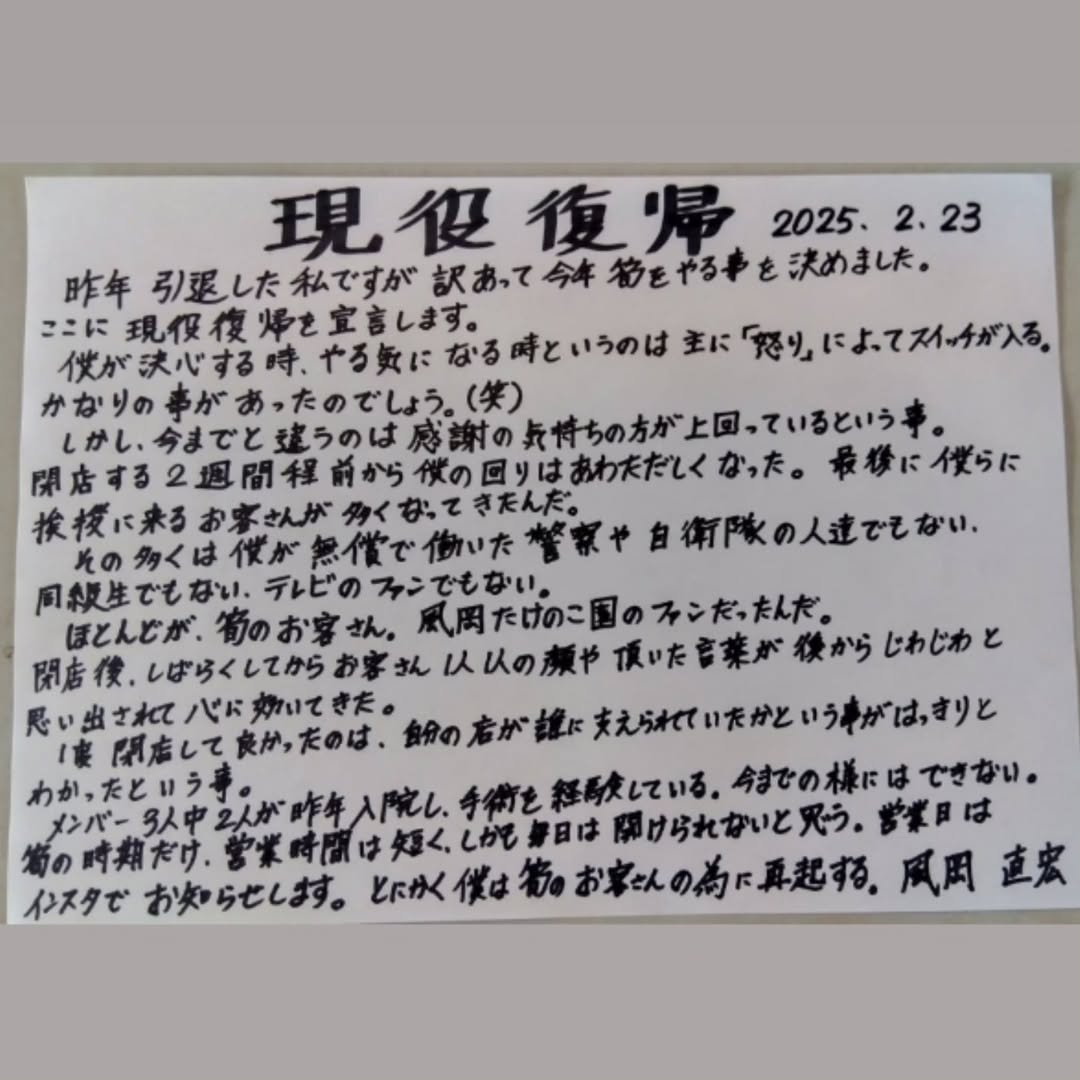 現役復帰 2025.2.23
昨年 引退した私ですが訳あって今年 筍をやる事を決めました。
ここに 現役復帰を宣言します。
僕が決心する時、やる気になる時というのは主に「怒り」によってスイッチが入る。
かなりの事があったのでしょう。(笑)
しかし、今までと違うのは感謝の気持ちの方が上回っているという事。
閉店する2週間程前から僕の回りはあわただしくなった。最後に僕らに
挨拶に来るお客さんが多くなってきたんだ。
その多くは僕が無償で働いた警察や自衛隊の人達でもない、
同級生でもない、テレビのファンでもない。
ほとんどが、筍のお客さん。風岡たけのこ園のファンだったんだ。
閉店後、しばらくしてからお客さん1人1人の顔や頂いた言葉が後からじわじわと
思い出されて心に効いてきた。
1度閉店して良かったのは、自分の店が誰に支えられていたかという事がはっきりと
わかったという事。
メンバー3人中2人が昨年入院し、手術を経験している。今までの様にはできない。
筍の時期だけ、営業時間は短く、しかも毎日は開けられないと思う。営業日は
インスタでお知らせします。とにかく僕は筍のお客さんの為に再起する。風岡 直宏